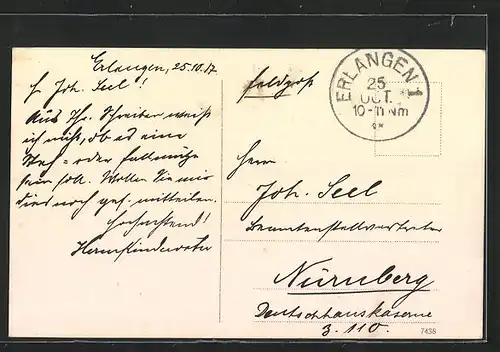 Erlangen, 25.10.17
H. Joh. Seel!
Aus Ihr. Schreiben weiß
ich nicht, ob es eine
oder
sein soll. Wollen Sie mir
dies noch gef. mitteilen.
Hochachtend!
Feldpost
ERLANGEN 1
25
OCT.
10-11 Nm
**
Herrn
Joh. Seel
Beamtenstellvertreter
Nürnberg
Deutschhauskaserne
Z. 110.
7438